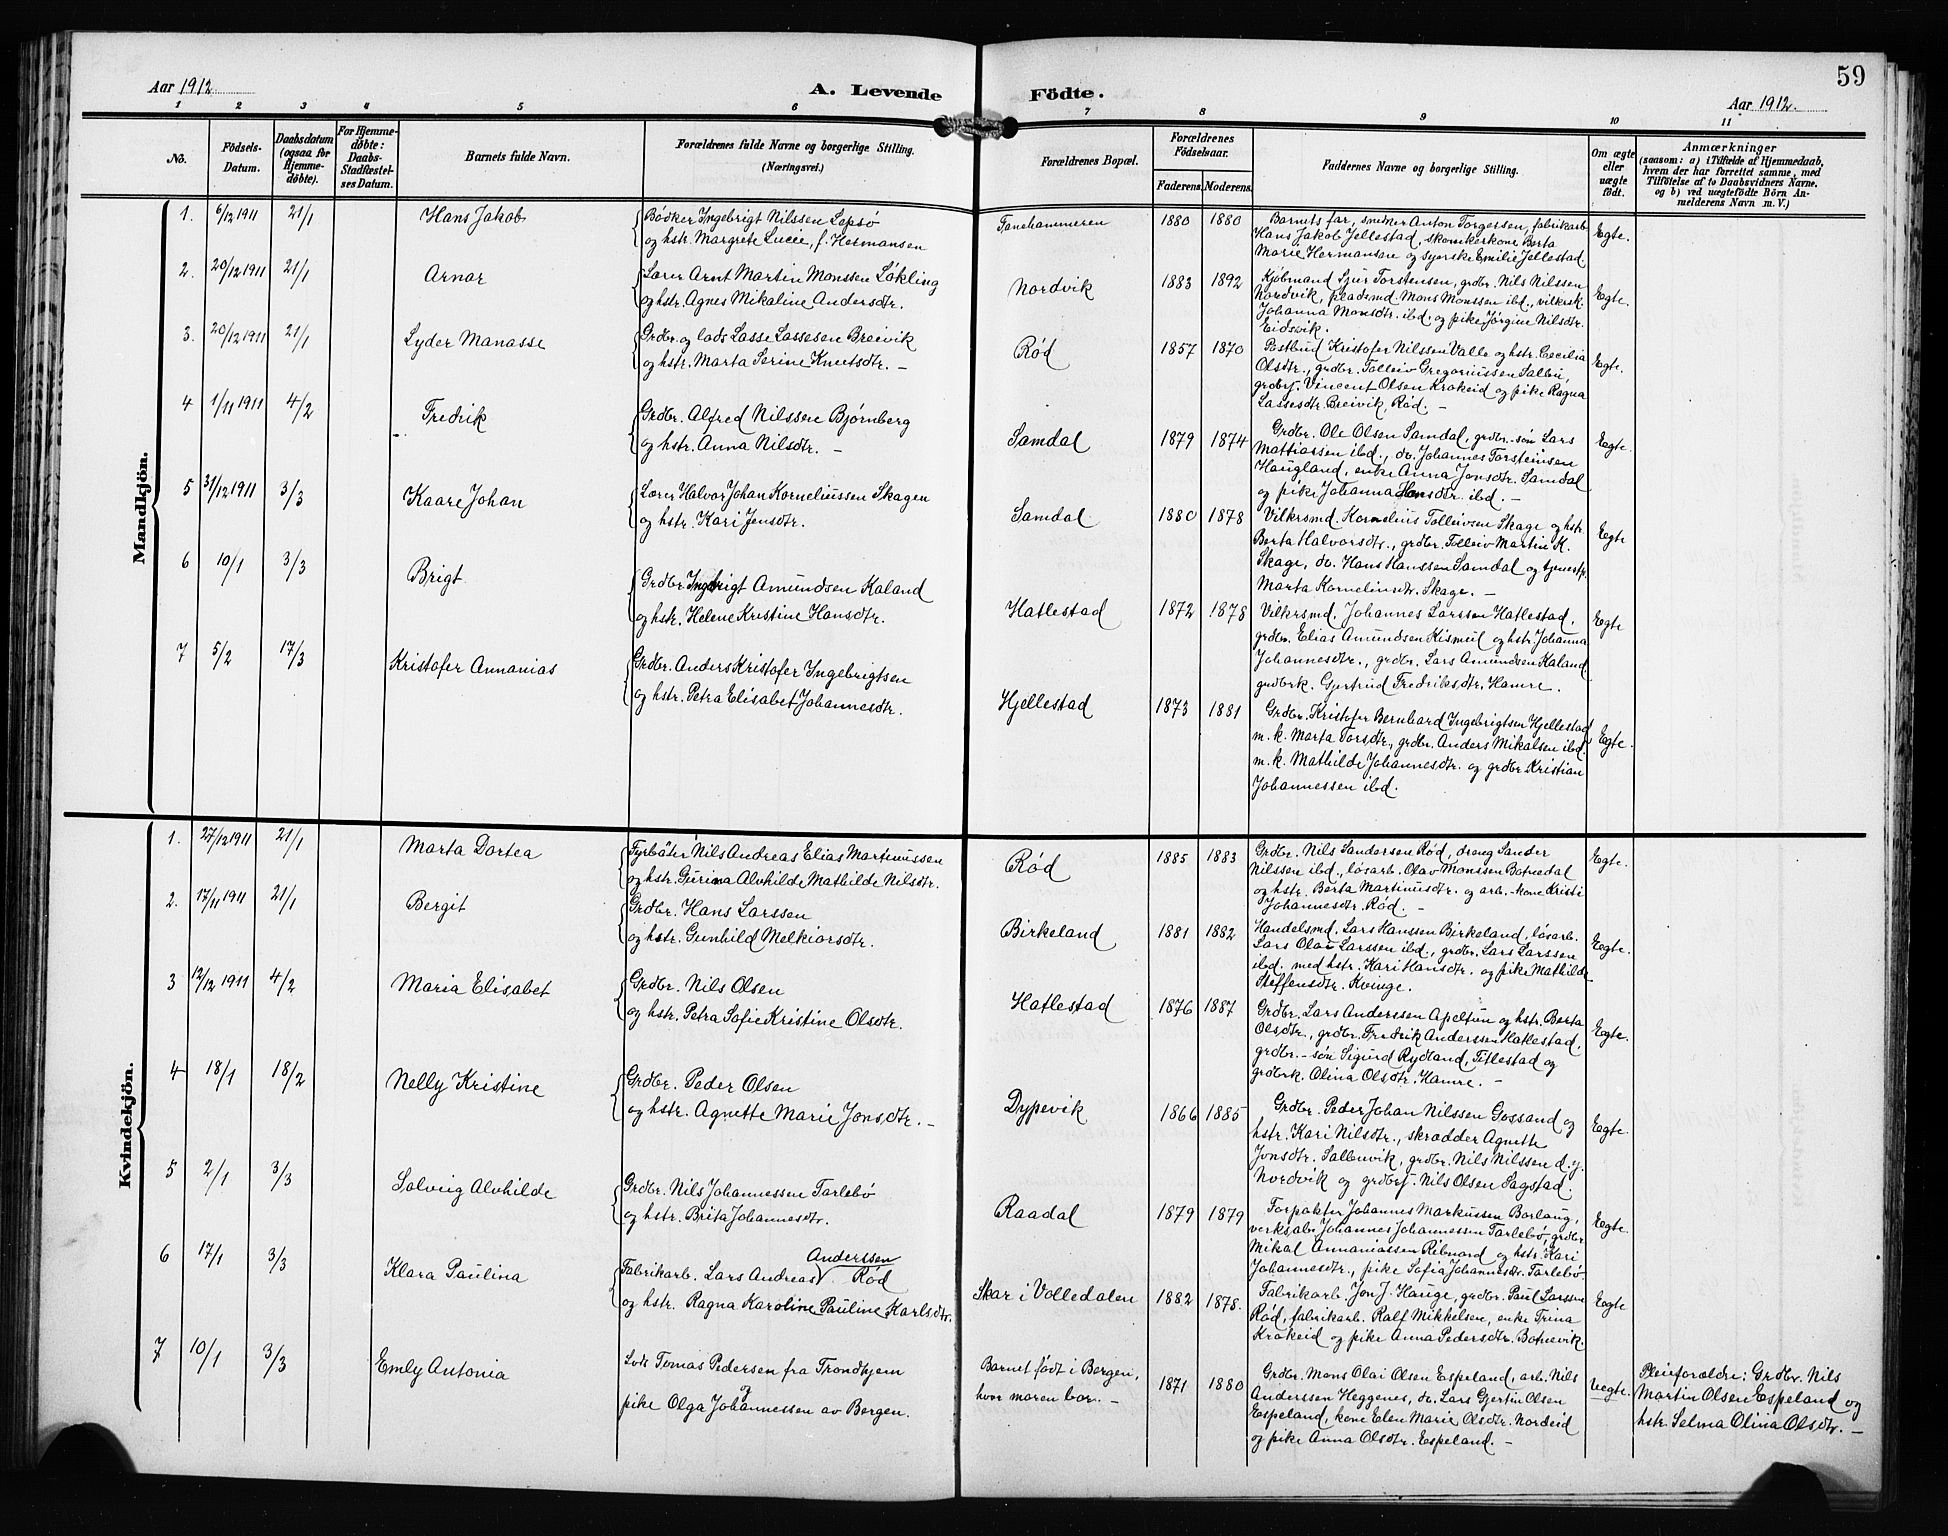 59
Aar 1912
A. Levende Födte.
Aar 1912.
1 2 3 4 5 6 7 8 9 10 11
No.
Födsels-Datum.
Daabsdatum (ogsaa for Hjemme-döbte).
For Hjemme-döbte: Daabs-Stadfæstel-ses Datum.
Barnets fulde Navn.
Forældrenes fulde Navne og borgerlige Stilling.
(Næringsvei.)
Forældrenes Bopæl.
Forældrenes Födselsaar.
Faderens. Moderens.
Faddernes Navne og borgerlige Stilling.
Om ægte eller uægte födt.
Anmærkninger
(saasom: a) i Tilfælde af Hjemmedaab, hvem der har forrettet samme, med Tilföielse af to Daabsvidners Navne, og b) ved uægtefödte Börn An-melderens Navn m. V.)
Mandkjön.
1. 6/12 1911 21/1 Hans Jakob
Bødker Ingebrigt Nilssen Lepsø
og hstr. Margrete Lucie, f. Hermansen
Fanehammeren 1880 1880
Barnets far, snedker Anton Torgersen, fabrikarb.
Hans Jakob Jellestad, skomakerkone Berta
Marie Hermansen og syerske Emilie Jellestad.
Egte.
2. 20/12 1911 21/1 Arnar
Lærer Arnt Martin Monssen Løkling
og hstr. Agnes Mikaline Andersdtr.
Nordvik 1883 1892
Kjøbmand Sjur Torstensen, grdbr. Nils Nilssen
Nordvik, pladsmd. Mons Monssen ibd., vilkersk.
Johanna Monsdtr. ibd. og pike Jørgine Nilsdtr.
Eidsvik.
Egte.
3. 20/12 1911 21/1 Lyder Manasse
Grdbr. og lods Lasse Lassesen Breivik
og hstr. Marta Serine Knutsdtr. –
Rød 1857 1870
Postbud Kristofer Nilssen Valle og hstr. Cecilia
Olsdtr., grdbr. Tolleiv Gregoriussen Salbu,
grdbrf. Vincent Olsen Krokeid og pike Ragna
Lassesdtr. Breivik, Rød. –
Egte.
4 1/11 1911 4/2 Fredrik
Grdbr. Alfred Nilssen Bjørnberg
og hstr. Anna Nilsdtr. –
Samdal 1879 1874
Grdbr. Ole Olsen Samdal, grdbr.-søn Lars
Mathiassen ibd., do. Johannes Torsteinsen
Haugland, enke Anna Jonsdtr. Samdal
og pike Johanna Hansdtr. ibd. –
Egte
5 31/12 1911 3/3 Kaare Johan
Lærer Halvor Johan Korneliussen Skagen
og hstr. Kari Jensdtr.
Samdal 1880 1878
Vilkrsmd. Kornelius Tolleivsen Skage og hstr.
Berta Halvorsdtr., grdbr. Tolleiv Martin K.
Skage, do. Hans Hanssen Samdal og tjenestp.
Marta Korneliusdtr. Skage. –
Egte
6 10/1 3/3 Brigt
Grdbr. Ingebrigt Amundsen Kaland
og hstr. Helene Kristine Hansdtr.
Hatlestad 1872 1878
Vilkrsmd. Johannes Larssen Hatlestad,
grdbr. Elias Amundsen Kismul og hstr. Johanna
Johannesdtr., grdbr. Lars Amundsen Kaland,
grdbrk. Gjertrud Fredriksdtr. Hamre.
Egte
7 5/2 17/3 Kristofer Annanias
Grdbr. Anders Kristofer Ingebrigtsen
og hstr. Petra Elisabet Johannesdtr.
Hjellestad 1873 1881
Grdbr. Kristofer Bernhard Ingebrigtsen Hjellestad
m. k. Marta Torsdtr., grdbr. Anders Mikalsen ibd.
m. k. Mathilde Johannesdtr. og grdbr. Kristian
Johannessen ibd.
Egte.
Kvindekjön.
1. 27/12 1911 21/1 Marta Dortea
Fyrbøter Nils Andreas Elias Martinussen
og hstr. Gurina Alvhilde Mathilde Nilsdtr.
Rød 1885 1883
Grdbr. Nils Sandersen Rød, dreng Sander
Nilssen ibd., løsarb. Olav Monssen Botnedal
og hstr. Berta Martinusdtr. og arb.-kone Kristi
Johannesdtr. Rød. –
Egte.
2. 17/11 1911 21/1 Bergit
Grdbr. Hans Larssen
og hstr. Gunhild Melkiorsdtr.
Birkeland 1881 1882
Handelsmd. Lars Hanssen Birkeland, løsarb.
Lars Olav Larssen ibd., grdbr. Lars Larssen
ibd. med hstr. Kari Hansdtr. og pike Mathilde
Steffensdtr. Kvinge.
Egte.
3 12/12 1911 4/2 Maria Elisabet
Grdbr. Nils Olsen
og hstr. Petra Sofie Kristine Olsdtr.
Hatlestad 1876 1887
Grdbr. Lars Anderssen Apeltun og hstr. Berta
Olsdtr., grdbr. Fredrik Anderssen Hatlestad,
grdbr.-søn Sigurd Rydland, Titlestad og
grdbrk. Olina Olsdtr. Hamre. –
Egte.
4 18/1 18/2 Nelly Kristine
Grdbr. Peder Olsen
og hstr. Agnette Marie Jonsdtr. –
Dypevik 1866 1885
Grdbr. Peder Johan Nilssen Gossand og
hstr. Kari Nilsdtr., skrædder Agnette
Jonsdtr. Sallenvik, grdbr. Nils Nilssen d. y.
Nordvik og grdbrf. Nils Olsen Sagstad.
Egte.
5 2/1 3/3 Solveig Alvhilde
Grdbr. Nils Johannessen Tarlebø
og hstr. Brita Johannesdtr.
Raadal 1879 1879
Forpakter Johannes Markussen Borlaug,
verksabr. Johannes Johannessen Tarlebø, grdbr.
Mikal Annaniassen Ribnord og hstr. Kari
Johannesdtr., pike Sofia Johannesdtr. Tarlebø.
Egte.
6 17/1 3/3 Klara Paulina
Anderssen
Fabrikarb. Lars Andreas Rød
og hstr. Ragna Karoline Pauline Karlsdtr.
Skar i Volledalen 1882 1878.
Fabrikarb. Jon J. Hauge, grdbr. Paul Larssen
Rød, fabrikarb. Ralf Mikkelsen, enke Trina
Krokeid og pike Anna Pedersdtr. Botnevik.
Egte
7 10/1 3/3 Emly Antonia
Lods Tomas Pedersen fra Trondhjem
og
pike Olga Johannessen av Bergen.
Barnet født i Bergen,
hvor moren bor. –
1871 1880
Grdbr. Mons Olai Olsen Espeland, arb. Nils
Anderssen Heggenes, do. Lars Gjertin Olsen
Espeland, kone Elen Marie Olsdtr. Nordeid
og pike Anna Olsdtr. Espeland. –
Uegte.
Pleieforældre: Grdbr. Nils
Martin Olsen Espeland og
hstr. Selma Olina Olsdtr. –